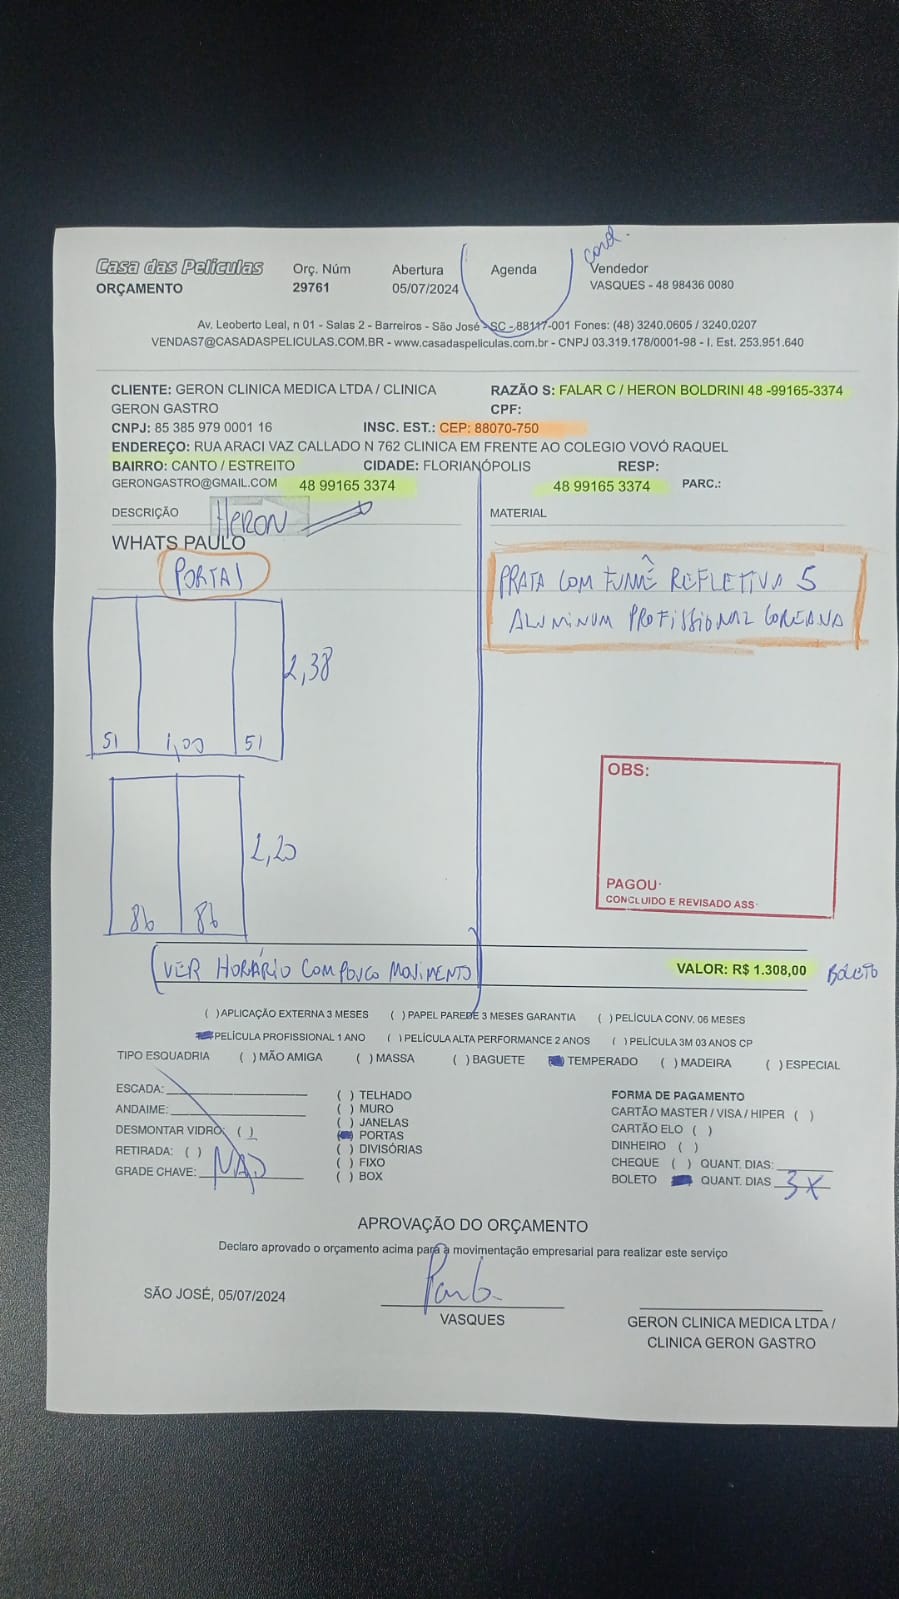 Casa das Películas
ORÇAMENTO
Orç. Núm
29761
Abertura
05/07/2024
Agenda
Vendedor
VASQUES - 48 98436 0080
Av. Leoberto Leal, n 01 - Salas 2 - Barreiros - São José - SC - 88117-001 Fones: (48) 3240.0605 / 3240.0207
VENDAS7@CASADASPELICULAS.COM.BR - www.casadaspeliculas.com.br - CNPJ 03.319.178/0001-98 - I. Est. 253.951.640
CLIENTE: GERON CLINICA MEDICA LTDA / CLINICA
GERON GASTRO
RAZÃO S: FALAR C / HERON BOLDRINI 48 -99165-3374
CPF:
CNPJ: 85 385 979 0001 16
INSC. EST.: CEP: 88070-750
ENDEREÇO: RUA ARACI VAZ CALLADO N 762 CLINICA EM FRENTE AO COLEGIO VOVÓ RAQUEL
BAIRRO: CANTO / ESTREITO CIDADE: FLORIANÓPOLIS RESP:
GERONGASTRO@GMAIL.COM 48 99165 3374 48 99165 3374 PARC.:
DESCRIÇÃO HERON
MATERIAL
WHATS PAULO
PORTAS
PRATA COM FUMÊ REFLETIVA 5
ALUMINUM PROFISSIONAL COREANA
2,38
51 1,00 51
2,20
86 86
OBS:
PAGOU:
CONCLUIDO E REVISADO ASS:
VER HORÁRIO COM POUCO MOVIMENTO
VALOR: R$ 1.308,00 BOLETO
( ) APLICAÇÃO EXTERNA 3 MESES ( ) PAPEL PAREDE 3 MESES GARANTIA ( ) PELÍCULA CONV. 06 MESES
PELÍCULA PROFISSIONAL 1 ANO ( ) PELÍCULA ALTA PERFORMANCE 2 ANOS ( ) PELÍCULA 3M 03 ANOS CP
TIPO ESQUADRIA ( ) MÃO AMIGA ( ) MASSA ( ) BAGUETE TEMPERADO ( ) MADEIRA ( ) ESPECIAL
ESCADA:
ANDAIME:
DESMONTAR VIDRO: ( )
RETIRADA: ( )
GRADE CHAVE:
NÃO
( ) TELHADO
( ) MURO
( ) JANELAS
PORTAS
( ) DIVISÓRIAS
( ) FIXO
( ) BOX
FORMA DE PAGAMENTO
CARTÃO MASTER / VISA / HIPER ( )
CARTÃO ELO ( )
DINHEIRO ( )
CHEQUE ( ) QUANT. DIAS:
BOLETO QUANT. DIAS 3X
APROVAÇÃO DO ORÇAMENTO
Declaro aprovado o orçamento acima para a movimentação empresarial para realizar este serviço
SÃO JOSÉ, 05/07/2024
VASQUES
GERON CLINICA MEDICA LTDA /
CLINICA GERON GASTRO